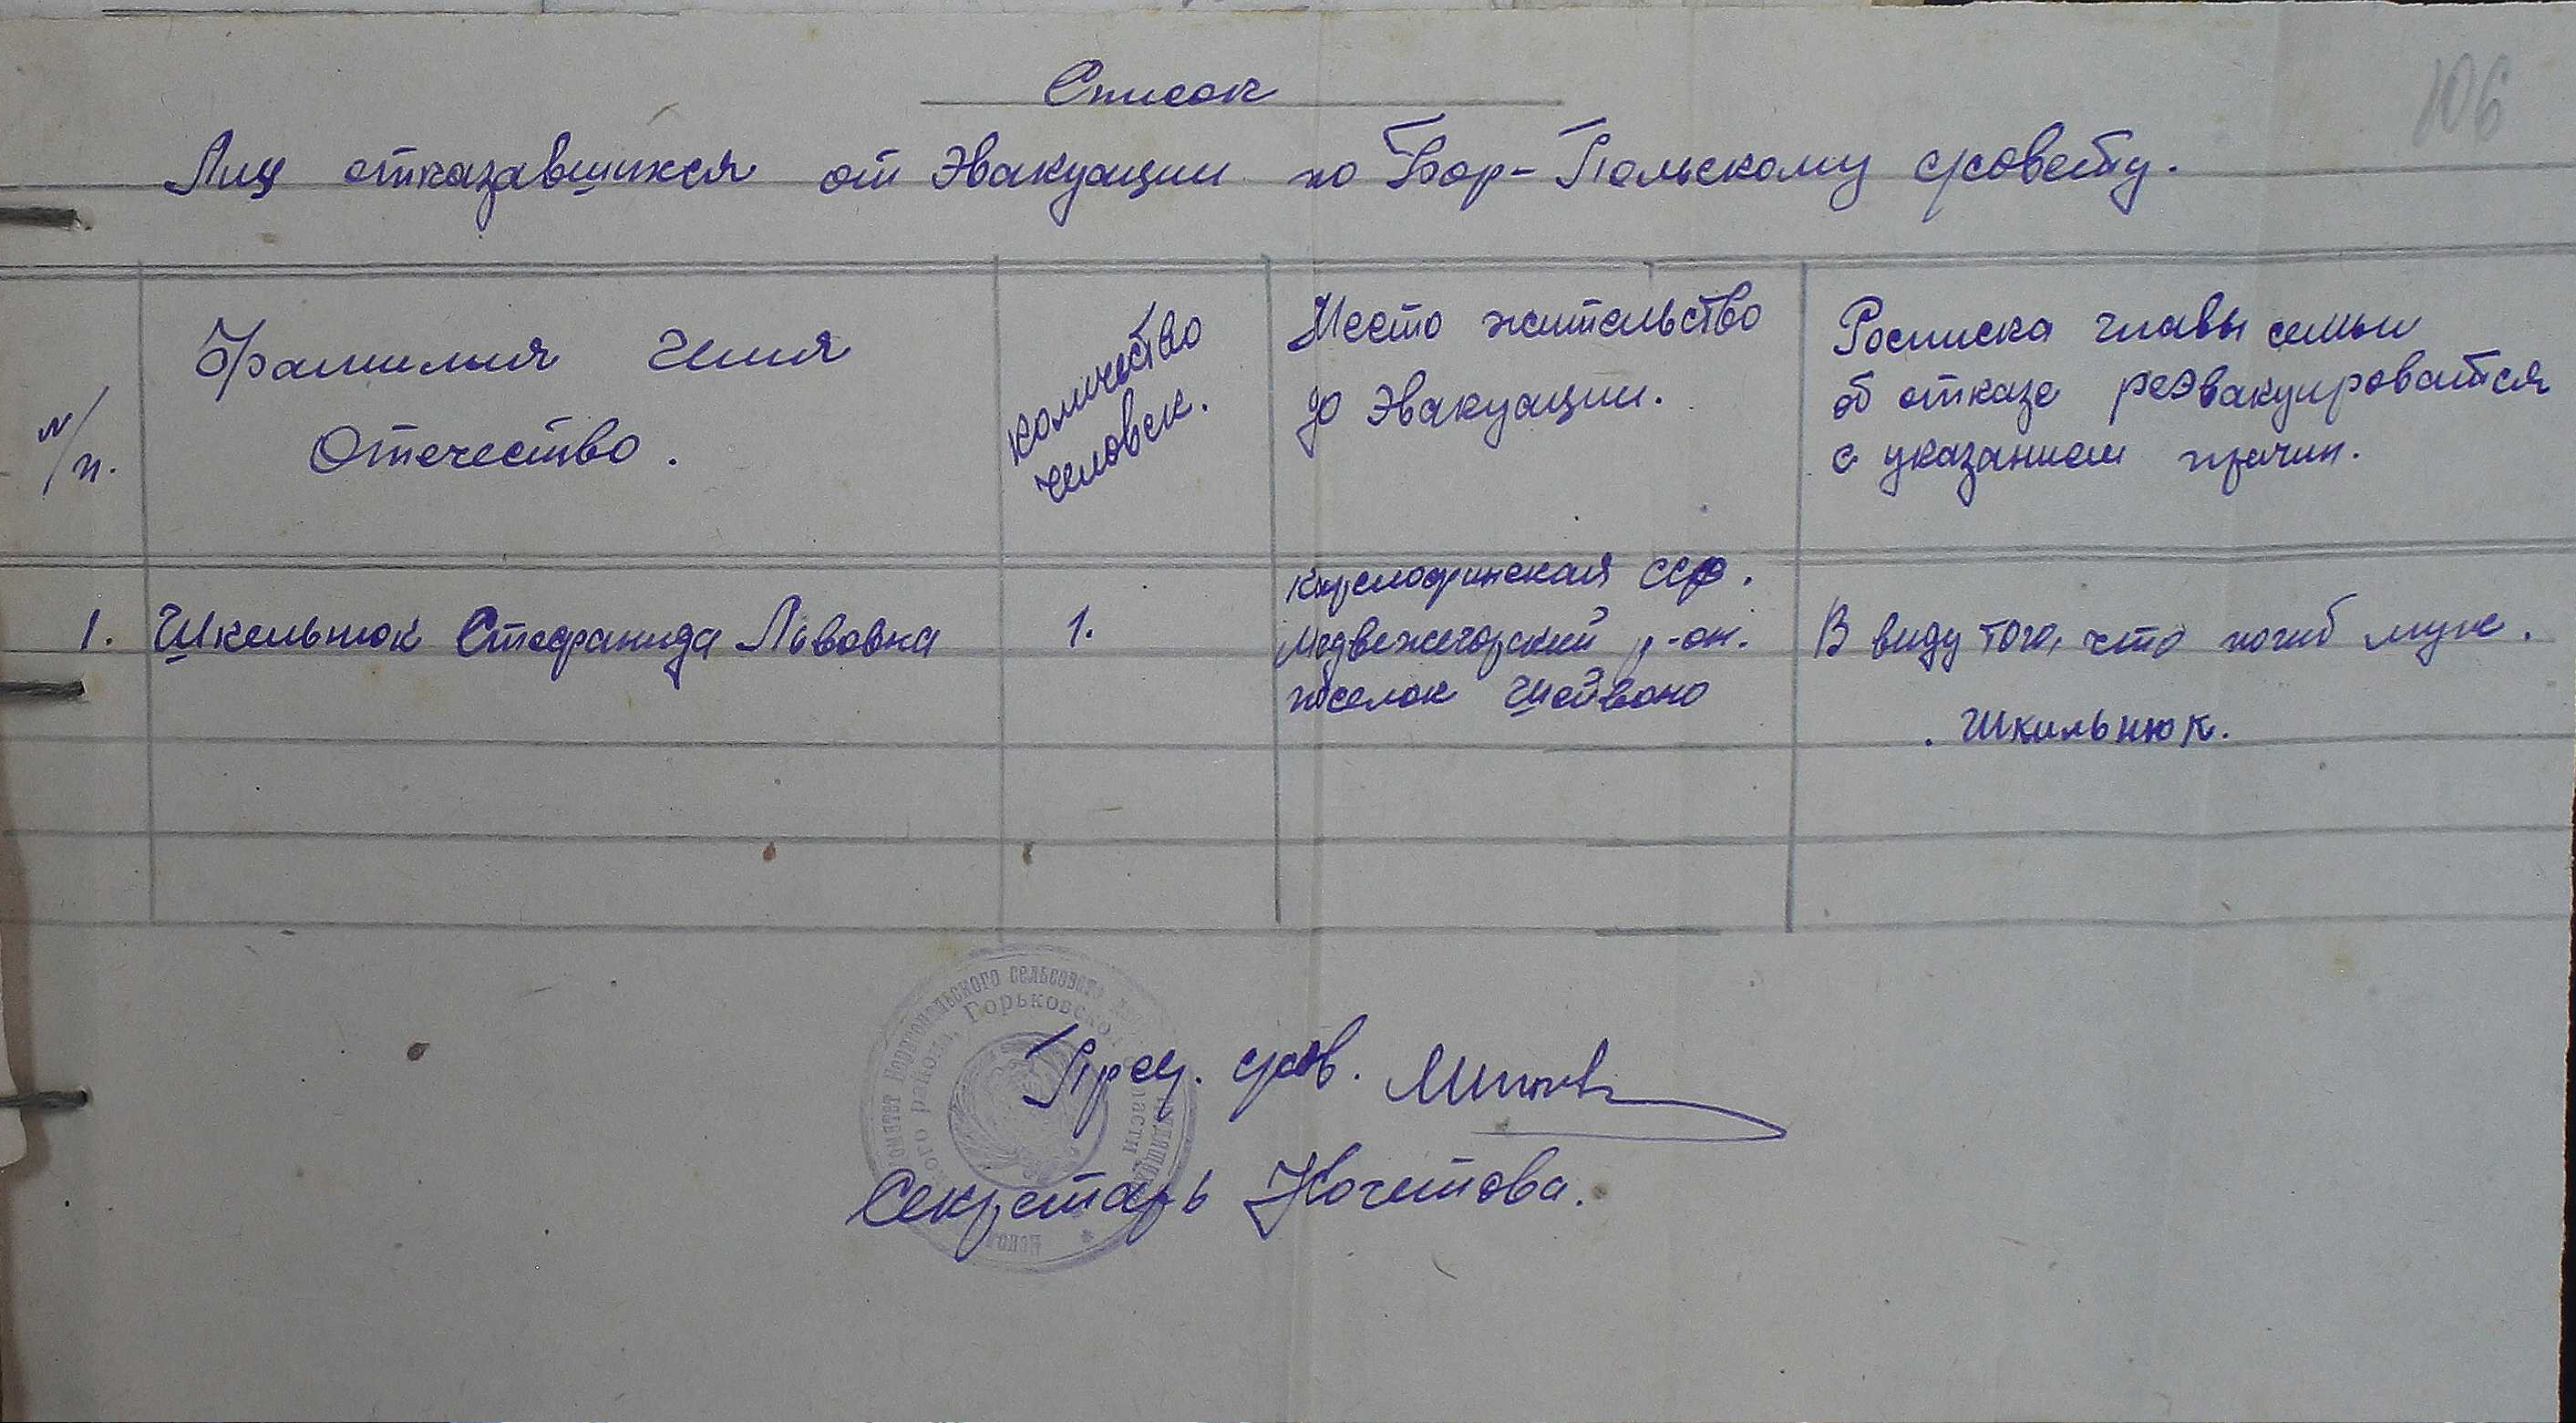 106
Список
Лиц отказавшихся от Эвакуации по Бор-Польскому с/совету.
№/п.
Фамилия Имя
Отечество.
Количество
человек.
Место жительство
до Эвакуации.
Росписка главы семьи
об отказе реэвакуироватся
с указанием причин.
1. Шкельнюк Стефанида Львовна
1.
Карелофинская ССР.
Медвежегорский р-он.
поселок
В виду того, что погиб муж.
Шкильнюк.
Пред. с/сов.
Секретарь Кочетова.
сельсовета
района, Горьковской области